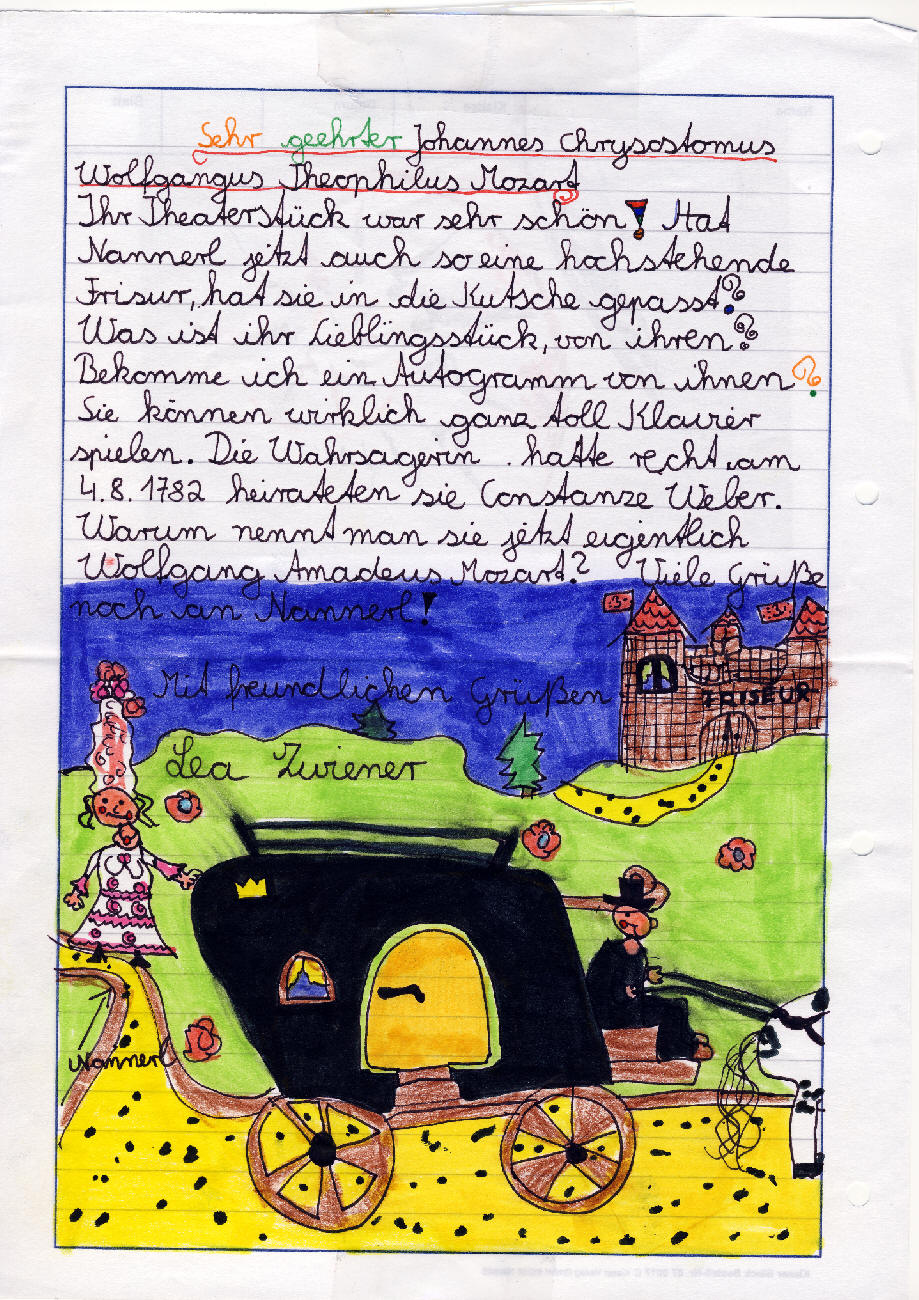 Sehr geehrter Johannes Chrysostomus
Wolfgangus Theophilus Mozart
Ihr Theaterstück war sehr schön! Hat
Nannerl jetzt auch so eine hochstehende
Frisur, hat sie in die Kutsche gepasst?
Was ist ihr Lieblingsstück, von ihren?
Bekomme ich ein Autogramm von ihnen?
Sie können wirklich ganz toll Klavier
spielen. Die Wahrsagerin hatte recht, am
4.8.1782 heirateten sie Constanze Weber.
Warum nennt man sie jetzt eigentlich
Wolfgang Amadeus Mozart? Viele Grüße
noch an Nannerl!
Mit freundlichen Grüßen
FRISEUR
Lea Zwiener
Nannerl